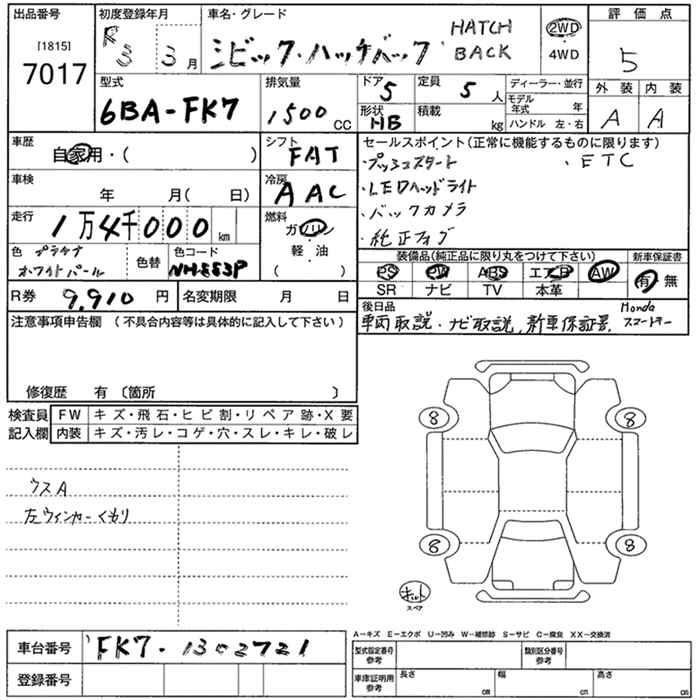 出品番号
[1815]
7017
初度登録年月
R3 3月
車名・グレード
シビック・ハッチバック
HATCH
BACK
2WD
4WD
評価点
5
外装 内装
A A
型式
6BA-FK7
排気量
1500 cc
ドア 5
定員 5人
形状 HB
積載 kg
ディーラー・並行
モデル年式 年
ハンドル 左・右
車歴
自家用・( )
シフト
FAT
車検
年 月( 日)
冷房
AAC
走行
1万4千000 km
燃料
ガソリン
・
軽・油
( )
色 プラチナ
ホワイトパール
色替
色コード
NH-883P
セールスポイント(正常に機能するものに限ります)
・プッシュスタート ・ETC
・LEDヘッドライト
・バックカメラ
・純正フォグ
装備品(純正品に限り丸をつけて下さい)
PS PW ABS エアB AW
SR ナビ TV 本革
新車保証書
有・無
R券 9,910円
名変期限 月 日
後日品
車両取説・ナビ取説,新車保証書,
Honda
スマートキー
注意事項申告欄 (不具合内容等は具体的に記入して下さい)
修復歴 有〔箇所 〕
検査員
記入欄
FW キズ・飛石・ヒビ割・リペア跡・X要
内装 キズ・汚レ・コゲ・穴・スレ・キレ・破レ
ウスA
左ウィンカーくもり
8 8
8 8
キット
スペア
A-キズ E-エクボ U-凹み W-補修跡 S-サビ C-腐食 XX-交換済
車台番号 FK7-1302721
登録番号
型式指定番号
参考
類別区分番号
参考
車庫証明用
参考
長さ cm
幅 cm
高さ cm